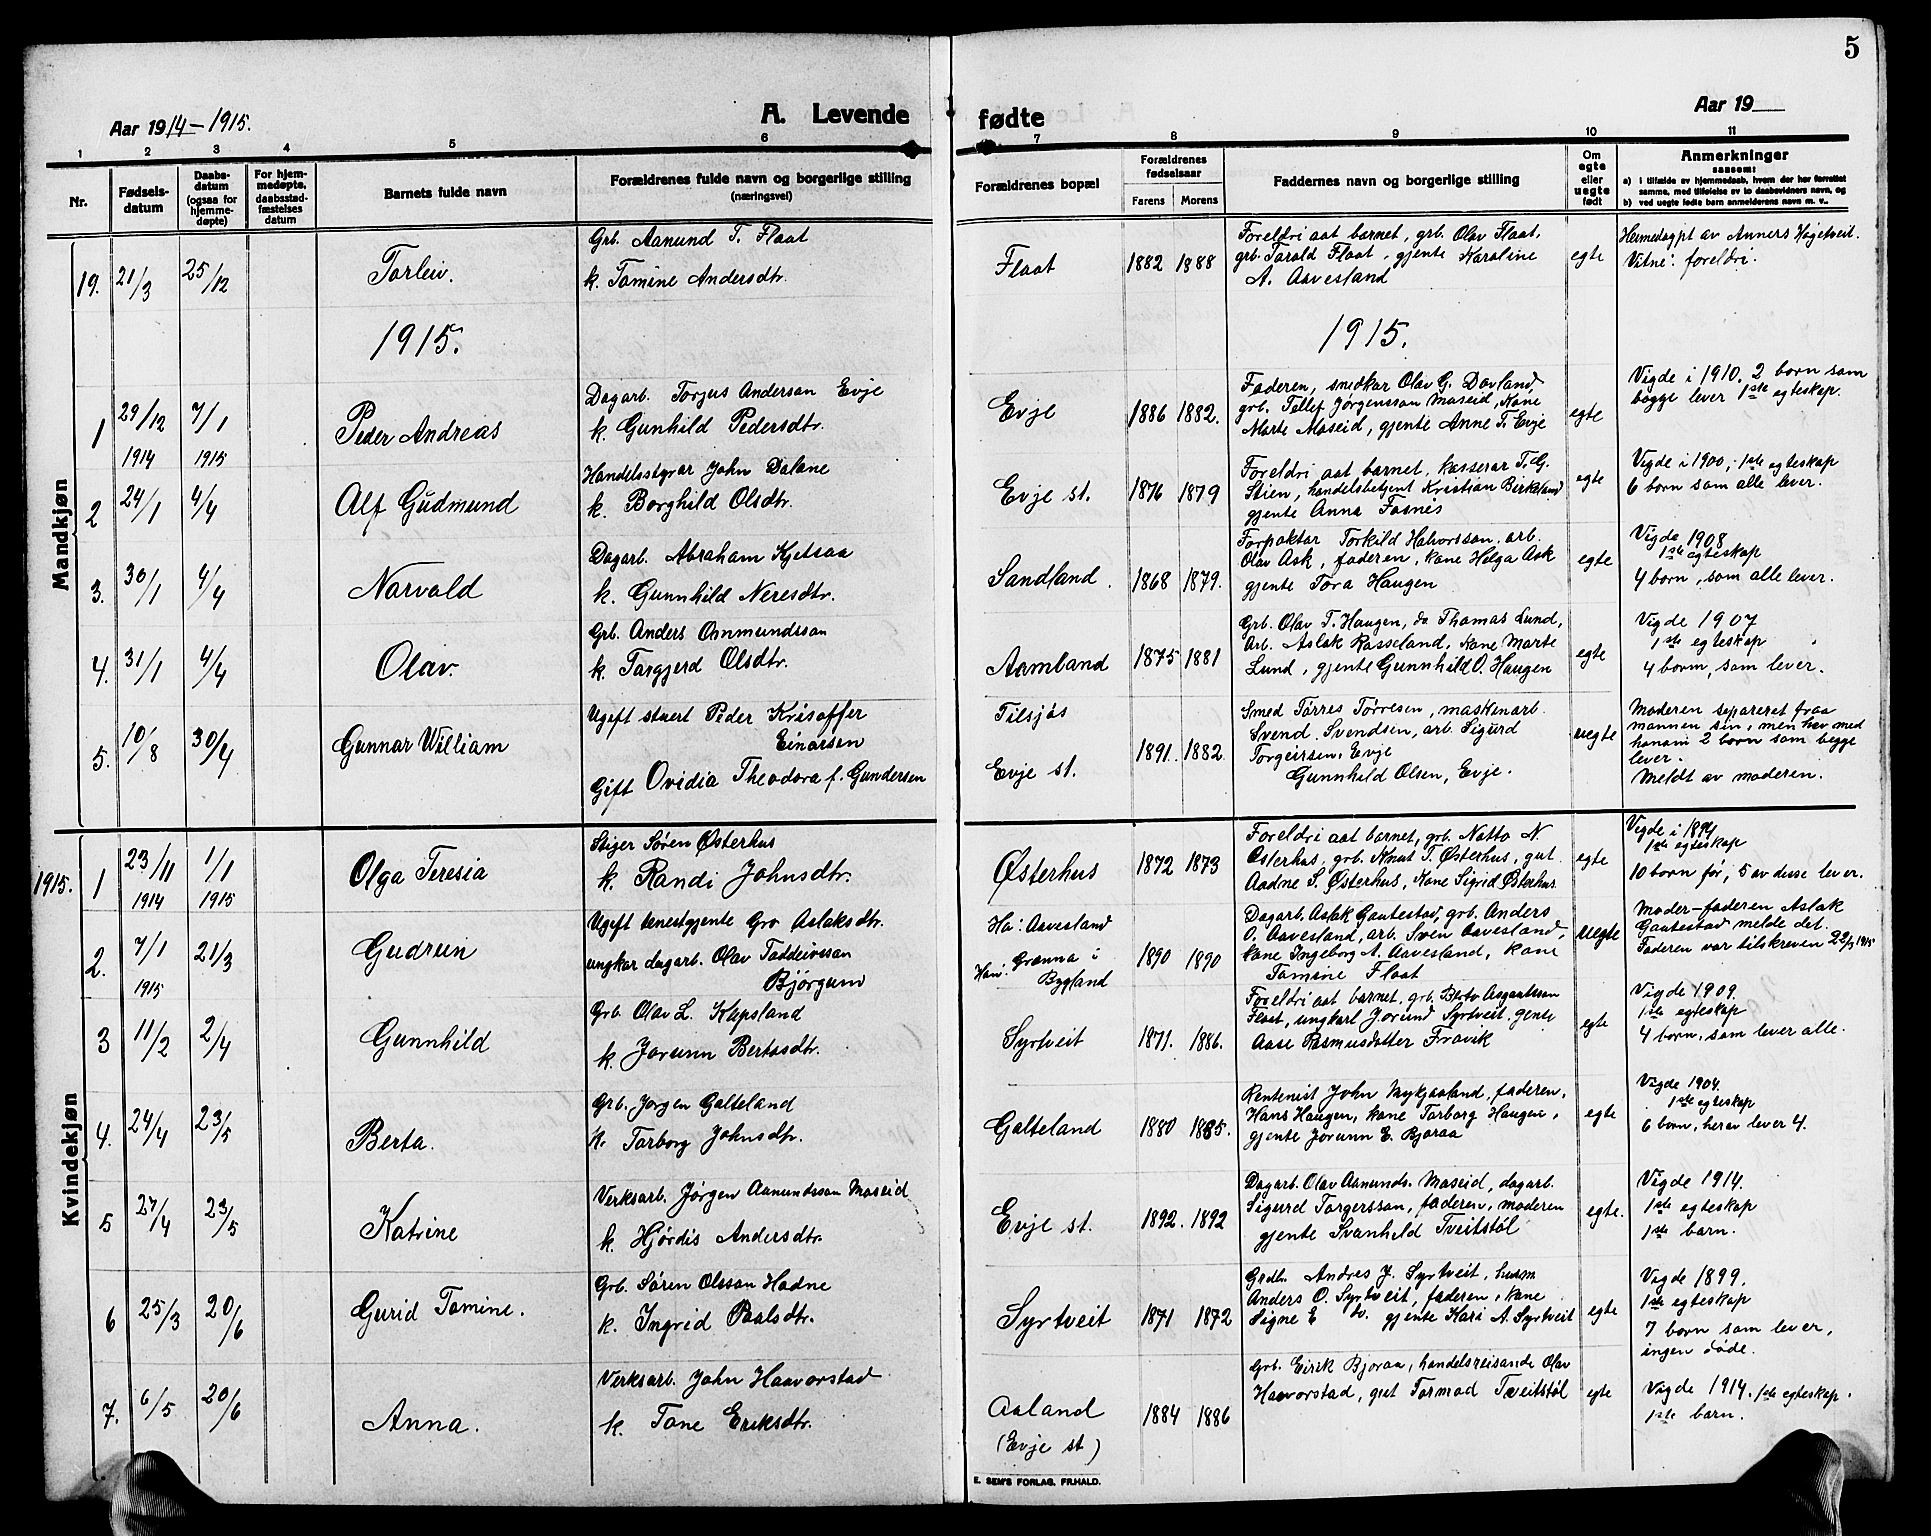 5
Aar 1914-1915.
A. Levende
fødte
Aar 19
1 2 3 4 5 6 7 8 9 10 11
Nr.
Fødsels-
datum
Daabs-
datum
(ogsaa for
hjemme-
døpte)
For hjem-
medøpte,
daabsstad-
fæstelses
datum
Barnets fulde navn
Forældrenes fulde navn og borgerlige stilling
(næringsvei)
Forældrenes bopæl
Forældrenes
fødselsaar
Farens Morens
Faddernes navn og borgerlige stilling
Om
egte
eller
uegte
født
Anmerkninger
saasom:
a) i tilfælde av hjemmedaab, hvem der har forrettet
samme, med tilføielse av to daabsvidners navn, og
b) ved uegte fødte barn anmelderens navn m. v..
Mandkjøn
19. 21/3 25/12
Torleiv.
Grb. Aanund T. Flaat
k. Tomine Andersdtr.
Flaat
1882 1888
Foreldri aat barnet, grb. Olav Flaat,
grb. Tarald Flaat, gjente Karoline
A. Aavesland
egte
Hermedøypt av Anners Høgetveit.
Vitne: foreldri.
1915.
1915.
1 29/12 1914 7/1 1915
Peder Andreas
Dagarb. Torjus Anderson Evje
k. Gunhild Pedersdtr.
Evje
1886 1882.
Faderen, snedkar Olav G. Dovland,
grb. Tellef Jørgensson Maseid, Kone
Marte Maseid, gjente Anne T. Evje
egte
Vigde i 1910. 2 born som
bægge lever 1ste egteskap.
2 24/1 4/4
Alf Gudmund
Handelsstyrar John Dalane
k. Borghild Olsdtr.
Evje st.
1876 1879
Foreldri aat barnet, kasserar T. G.
Stien, handelsbetjent Kristian Birkeland
gjente Anna Fosnes
egte
Vigde i 1900, 1ste egteskap
6 born som alle lever.
3. 30/1 4/4
Norvald
Dagarb. Abraham Kjetsaa
k. Gunnhild Neresdtr.
Sandland.
1868 1879.
Forpaktar Torkild Halvorsson, arb.
Olav Ask, faderen, kane Helga Ask
gjente Tora Haugen
egte
Vigde 1908
1ste egteskap
4 born, som alle lever.
4. 31/1 4/4
Olav.
Grb. Anders Omnundsson
k. Targjerd Olsdtr.
Aamland
1875 1881
Grb. Olav T. Haugen, do Thomas Lund,
Arb. Aslak Rasseland, Kane Marte
Lund, gjente Gunnhild O. Haugen
egte
Vigde 1907
1ste egteskap
4 born, som lever.
5. 10/8 30/4
Gunnar William
Ugift stuert Peder Krisoffer
Einarsen
Gift Ovidia Theodora f. Gundersen
Tilsjøs
Evje st.
1891. 1882
Smed Tørres Tørresen, maskenarb.
Svend Svendsen, arb. Sigurd
Torgeirsen, Evje
Gunnhild Olsen, Evje.
uegte
Moderen separeret fraa
mannen sin, men hev med
honom 2 born som begge
lever.
Meldt av moderen.
Kvindekjøn
1915. 1 23/11 1914 1/1 1915
Olga Teresia
Stiger Søren Østerhus
k. Randi Johnsdtr.
Østerhus
1872 1873
Foreldri aat barnet, grb. Notto N
Østerhus, grb. Knut T. Østerhus, gut
Aadne S. Østerhus, Kone Sigrid Østerhus
egte
Vigde i 1894
1ste egteskap
10 born før, 5 av desse lever.
2. 7/1 1915 21/3
Gudrun
Ugift tenestgjente Gro Aslaksdtr.
ungkar dagarb. Olav Taddeivsson
Bjørgum
Ho: Aavesland
Han: Grenna i
Bygland
1890 1890
Dagarb. Aslak Gautestad, grb. Anders
O. Aavesland, arb. Sven Aavesland,
kane Ingeborg A. Aavesland, kane
Tomine Flaat
uegte
Moder-faderen Aslak
Gautestad melde det.
Faderen var tilskreven 22/3 1915
3 11/2 2/4
Gunnhild
Grb. Olav L. Kapsland
k. Jorunn Bertosdtr.
Syrtveit
1871. 1886.
Foreldri aat barnet, grb. Berto Asgautsson
Flaat, ungkarl Jorund Syrtveit, gente
Aase Rasmusdotter Frøvik
egte
Vigde 1909.
1ste egteskap
4 born, som lever alle.
4. 24/4 23/5
Berta.
Grb. Jorgen Galteland
k. Torborg Johnsdtr.
Galteland
1880 1885.
Rentenist John Mykjaaland, faderen,
Hans Haugen, kane Torborg Haugen,
gjente Jorunn E. Bjoraa
egte
Vigde 1904.
1ste egteskap
6 born, herav lever 4.
5 27/4 23/5
Katrine
Verksarb. Jørgen Aanundsson Maseid
k. Hjørdis Andersdtr.
Evje st.
1892. 1892
Dagarb. Olav Aanunds. Maseid, dagarb.
Sigurd Torgersson, faderen, moderen
gjente Svanheld Tveitstøl
egte.
Vigde 1914.
1ste egteskap
1ste barn.
6 25/3 20/6
Gurid Tomine.
Grb. Søren Olsson Hodne
k. Ingrid Paalsdtr.
Syrtveit
1871 1872
Grdb. Andres J. Syrtveit, husm
Anders O. Syrtveit, faderen, kane
Signe E do. gjente Kari A. Syrtveit
egte
Vigde 1899.
1ste egteskap
7 born som lever,
ingen døde.
7. 6/5 20/6
Anna.
Verksarb. John Haavorstad
k. Tone Eriksdtr.
Aaland
(Evje st)
1884 1886
Grb. Eirik Bjoraa, handelsreisande Olav
Haavorstad, gut Tormod Tveitstøl
egte
Vigde 1914. 1ste egteskap.
1ste barn.
E. SEM'S FORLAG. FR.HALD.